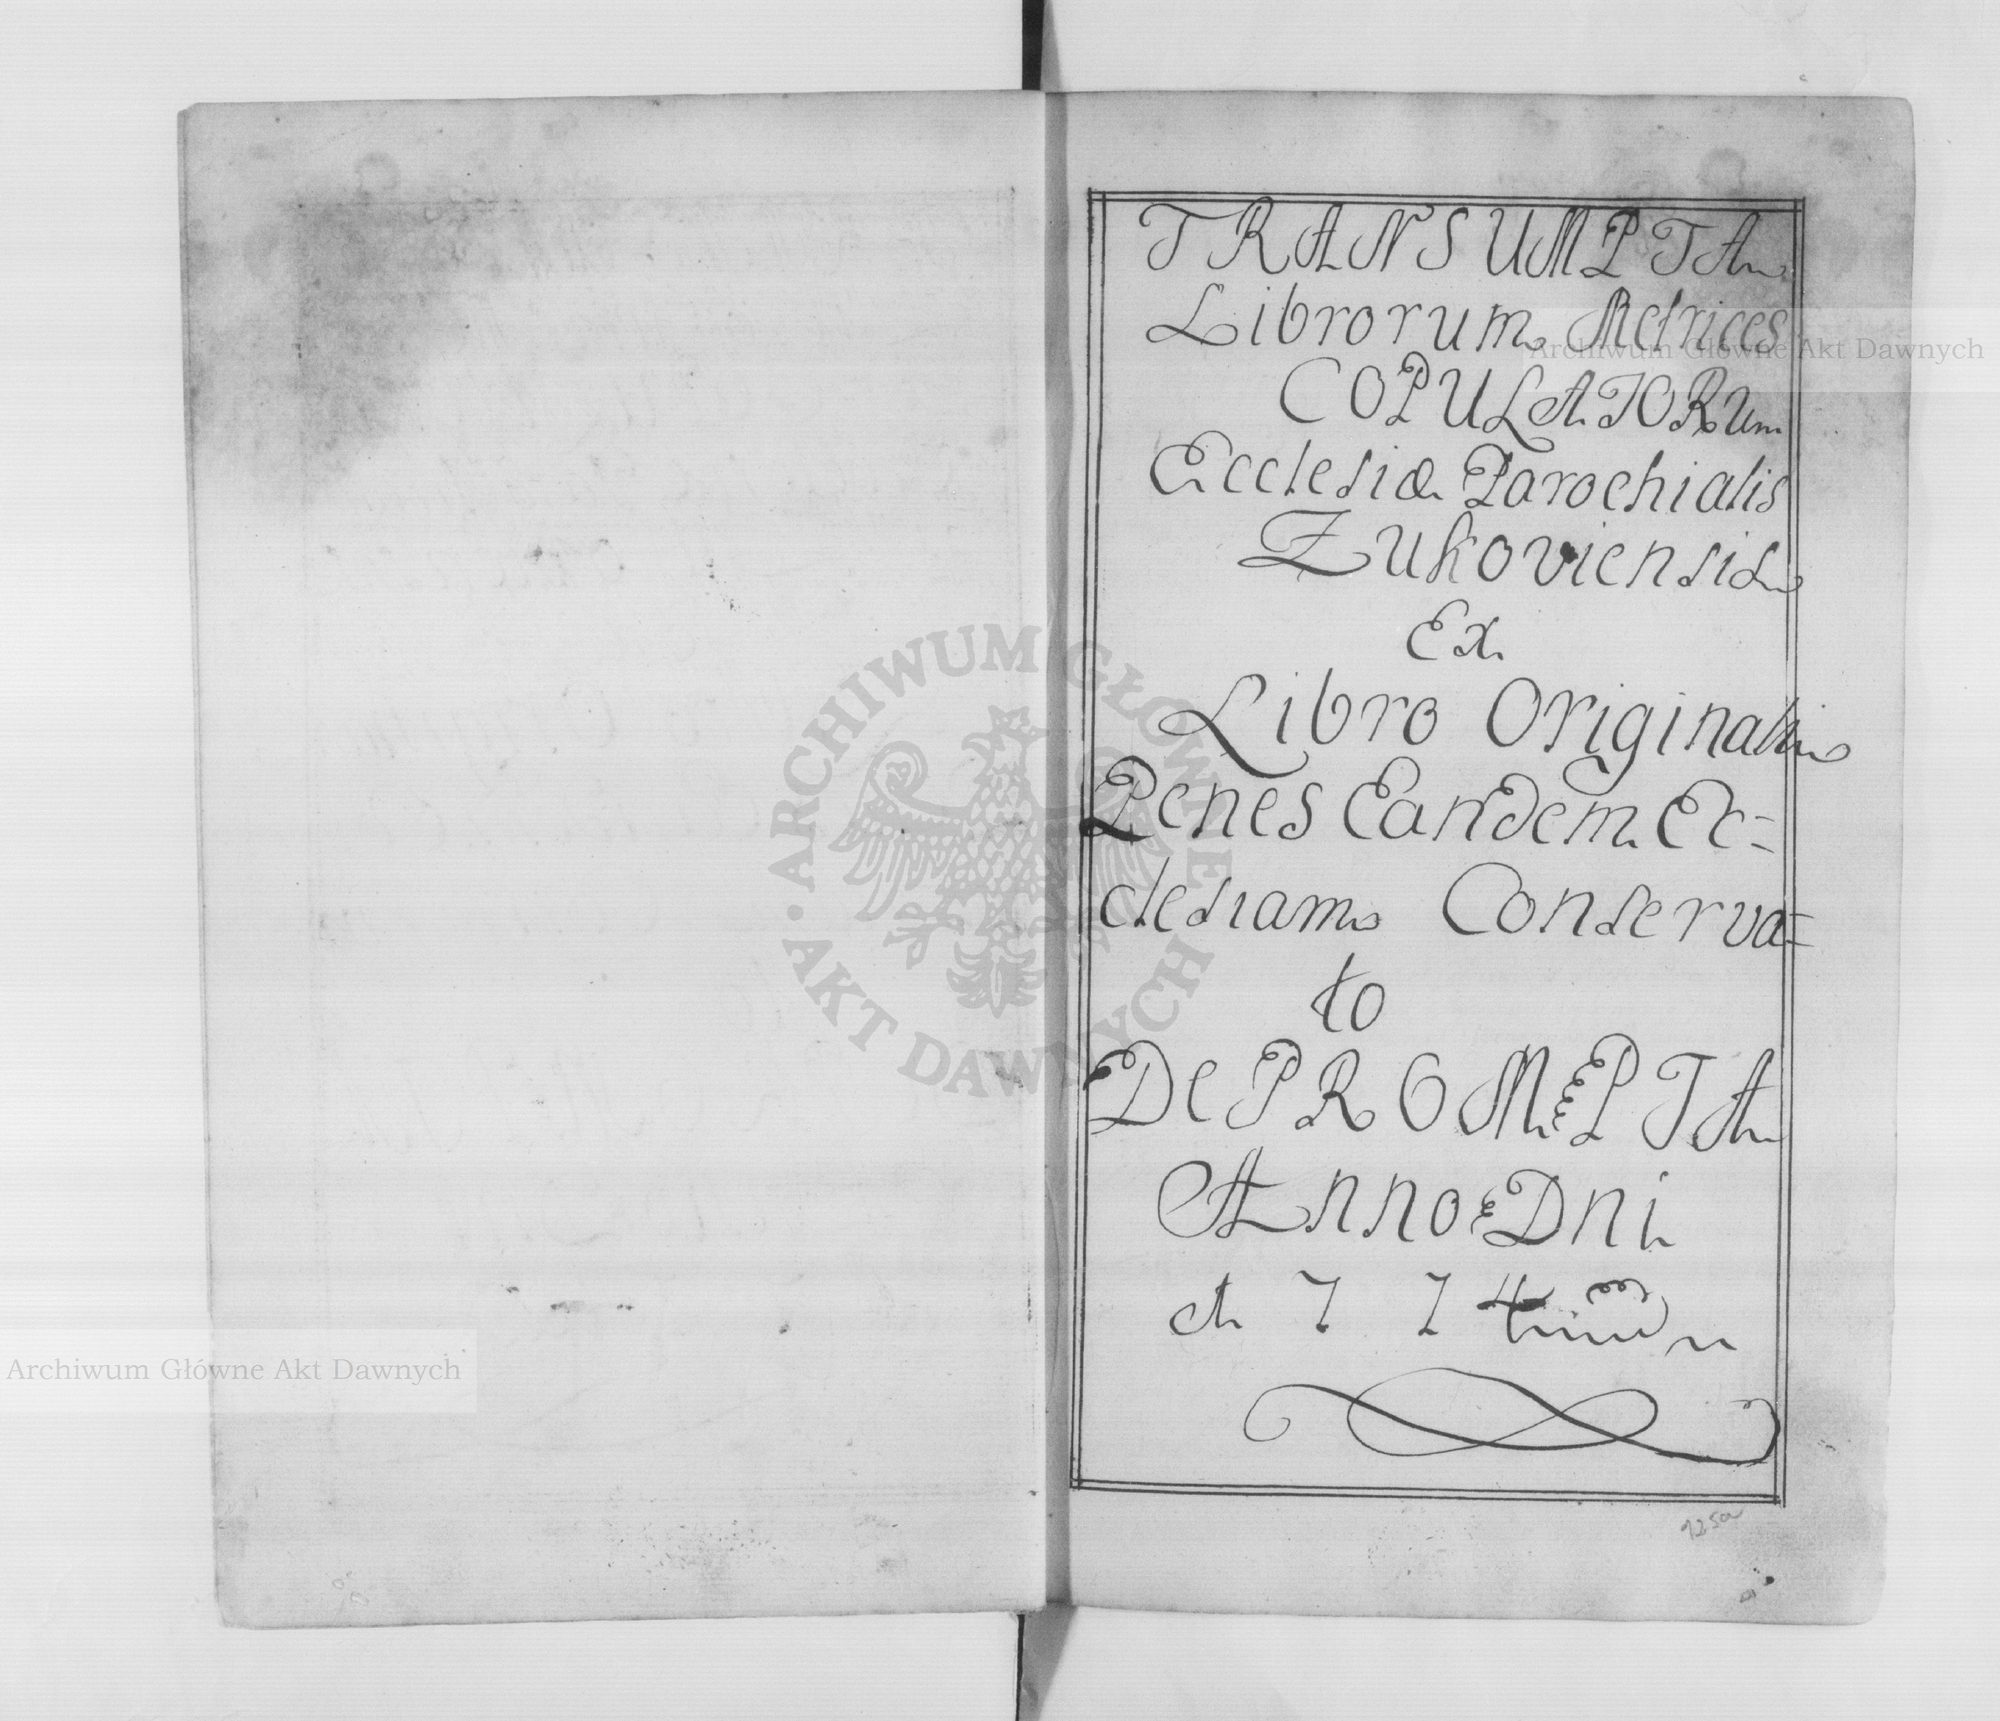 TRANSUMPTA
Librorum Metrices
COPULATORum
Ecclesiæ Parochialis
Zukoviensis
Ex
Libro Originali
Penes Eandem Ec=
clesiam Conserva=
to
DePROMPTA
Anno Dni
1774
125a
Archiwum Główne Akt Dawnych
Archiwum Główne Akt Dawnych
ARCHIWUM GŁÓWNE
AKT DAWNYCH